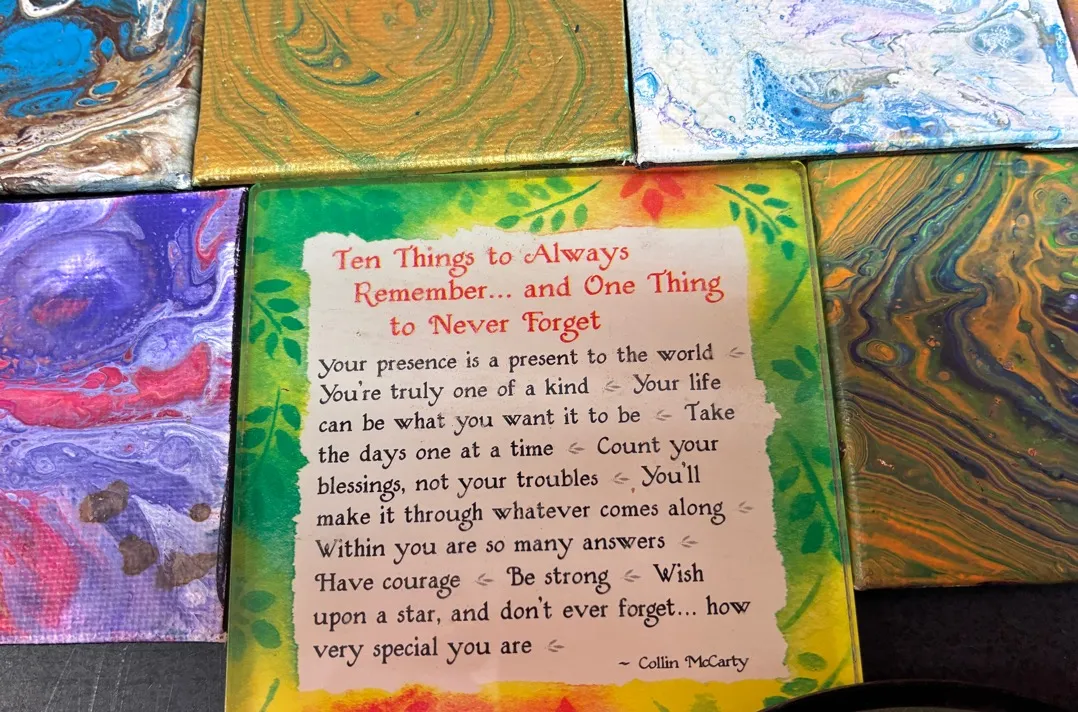 Ten Things to Always
Remember... and One Thing
to Never Forget
Your presence is a present to the world
You're truly one of a kind Your life
can be what you want it to be Take
the days one at a time Count your
blessings, not your troubles You'll
make it through whatever comes along
Within you are so many answers
Have courage Be strong Wish
upon a star, and don't ever forget... how
very special you are
~ Collin McCarty